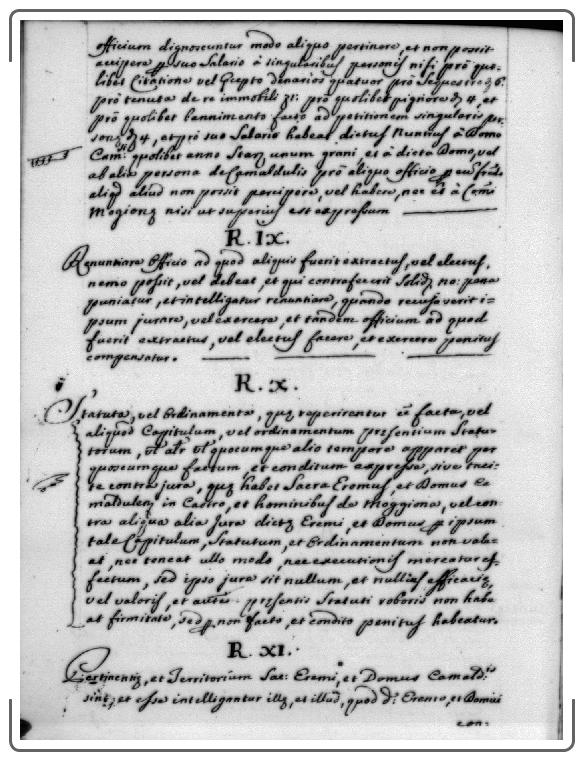 officium dignoscuntur modo aliquo pertinere, et non possit
accipere p suo Salario à singularibus personis nisi prò quo-
libet Citatione vel Precepto denarios quatuor prò Sequestro 6.
prò tenuta de re immobili prò quolibet pignore 4, et
prò quolibet bannimento facto ad petitionem singularis per-
sonę 4, et prò suo Salario habeat dictus Nuntius à Domo
Cam: quolibet anno Star unum grani, et à dicta Domo, vel
ab alia persona de Camaldulis prò aliquo officio p eum
aliqd aliud non possit percipere, vel habere, nec à Comi
Mogionę nisi ut superius est expressum
R. IX.
Renuntiare Officio ad quod aliquis fuerit extractus, vel electus,
nemo possit, vel debeat, et qui contrafecerit Solid, no: pena
puniatur, et intelligatur renuntiare, quando recusaverit i=
psum jurare, vel exercere, et tandem officium ad quod
fuerit extractus, vel electus facere, et exercere penitus
compensatur.
R. X.
Statuta, vel Ordinamenta, quę reperirentur eē facta, vel
aliquod Capitulum, vel ordinamentum presentium Statu-
torum, vt alr vl quocumque alio tempore apparet per
quoscumque factum, et conditum expresse, sive taci-
te contra jura, quę habet Sacra Eremus, et Domus Ca
malduleń in Castro, et hominibus de Moggiona, vel con-
tra aliqua alia Jura dictę Eremi, et Domus, p ipsum
tale Capitulum, Statutum, et Ordinamentum non vale-
at, nec teneat ullo modo, nec executionis mereatur ef-
fectum, sed ipso jure sit nullum, et nullius efficacię,
vel valoris, et aucte presentis Statuti roboris non habe
at firmitate, sed p non facto, et condito penitus habeatur.
R. XI.
Pertinentię, et Territorium Sac: Eremi, et Domus Camald:is
sint, et esse intelligantur illę, et illud, quod d: Eremo, et Domui
con-